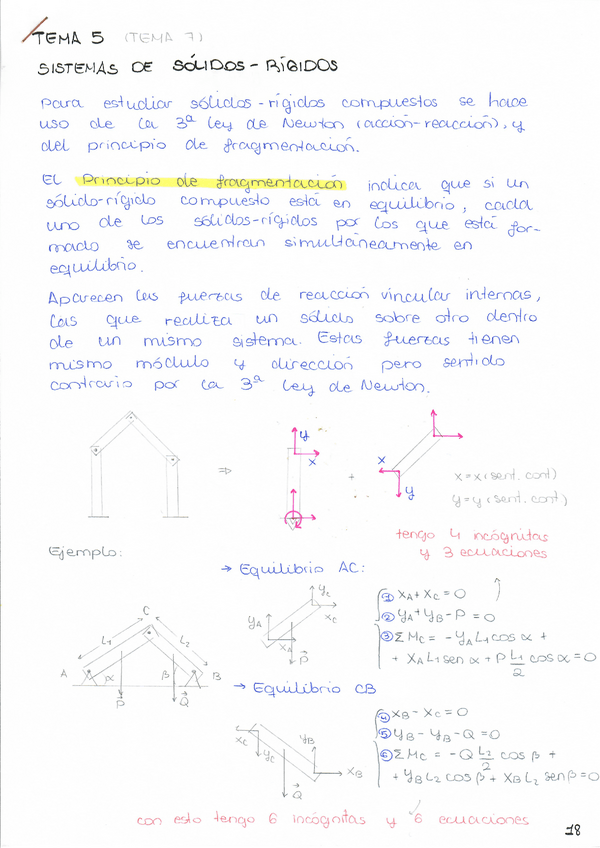 TEMA 5 (TEMA 7)
SISTEMAS DE SÓLIDOS-RÍGIDOS
Para estudiar sólidos-rígidos compuestos se hace
uso de la 3ª Ley de Newton (acción-reacción), y
del principio de fragmentación.
El Principio de fragmentación indica que si un
sólido-rígido compuesto está en equilibrio, cada
uno de los sólidos-rígidos por los que está for-
mado se encuentran simultáneamente en
equilibrio.
Aparecen las fuerzas de reacción vincular internas,
las que realiza un sólido sobre otro dentro
de un mismo sistema. Estas fuerzas tienen
mismo módulo y dirección pero sentido
contrario por la 3ª Ley de Newton.
⇒
y
x
+
x
y
x = x (sent. cont)
y = y (sent. cont)
tengo 4 incógnitas
y 3 ecuaciones
Ejemplo:
→ Equilibrio AC:
C
L₁
L₂
A
α
β
B
P
Q
y_A
x_A
y_C
x_C
P
① X_A + X_C = 0
② Y_A + Y_B - P = 0
③ Σ M_C = - Y_A L₁ cos α +
+ X_A L₁ sen α + P L₁/2 cos α = 0
→ Equilibrio CB
x_C
y_C
y_B
x_B
Q
④ X_B - X_C = 0
⑤ Y_B - Y_B - Q = 0
⑥ Σ M_C = - Q L₂/2 cos β +
+ Y_B L₂ cos β + X_B L₂ sen β = 0
con esto tengo 6 incógnitas y 6 ecuaciones
18